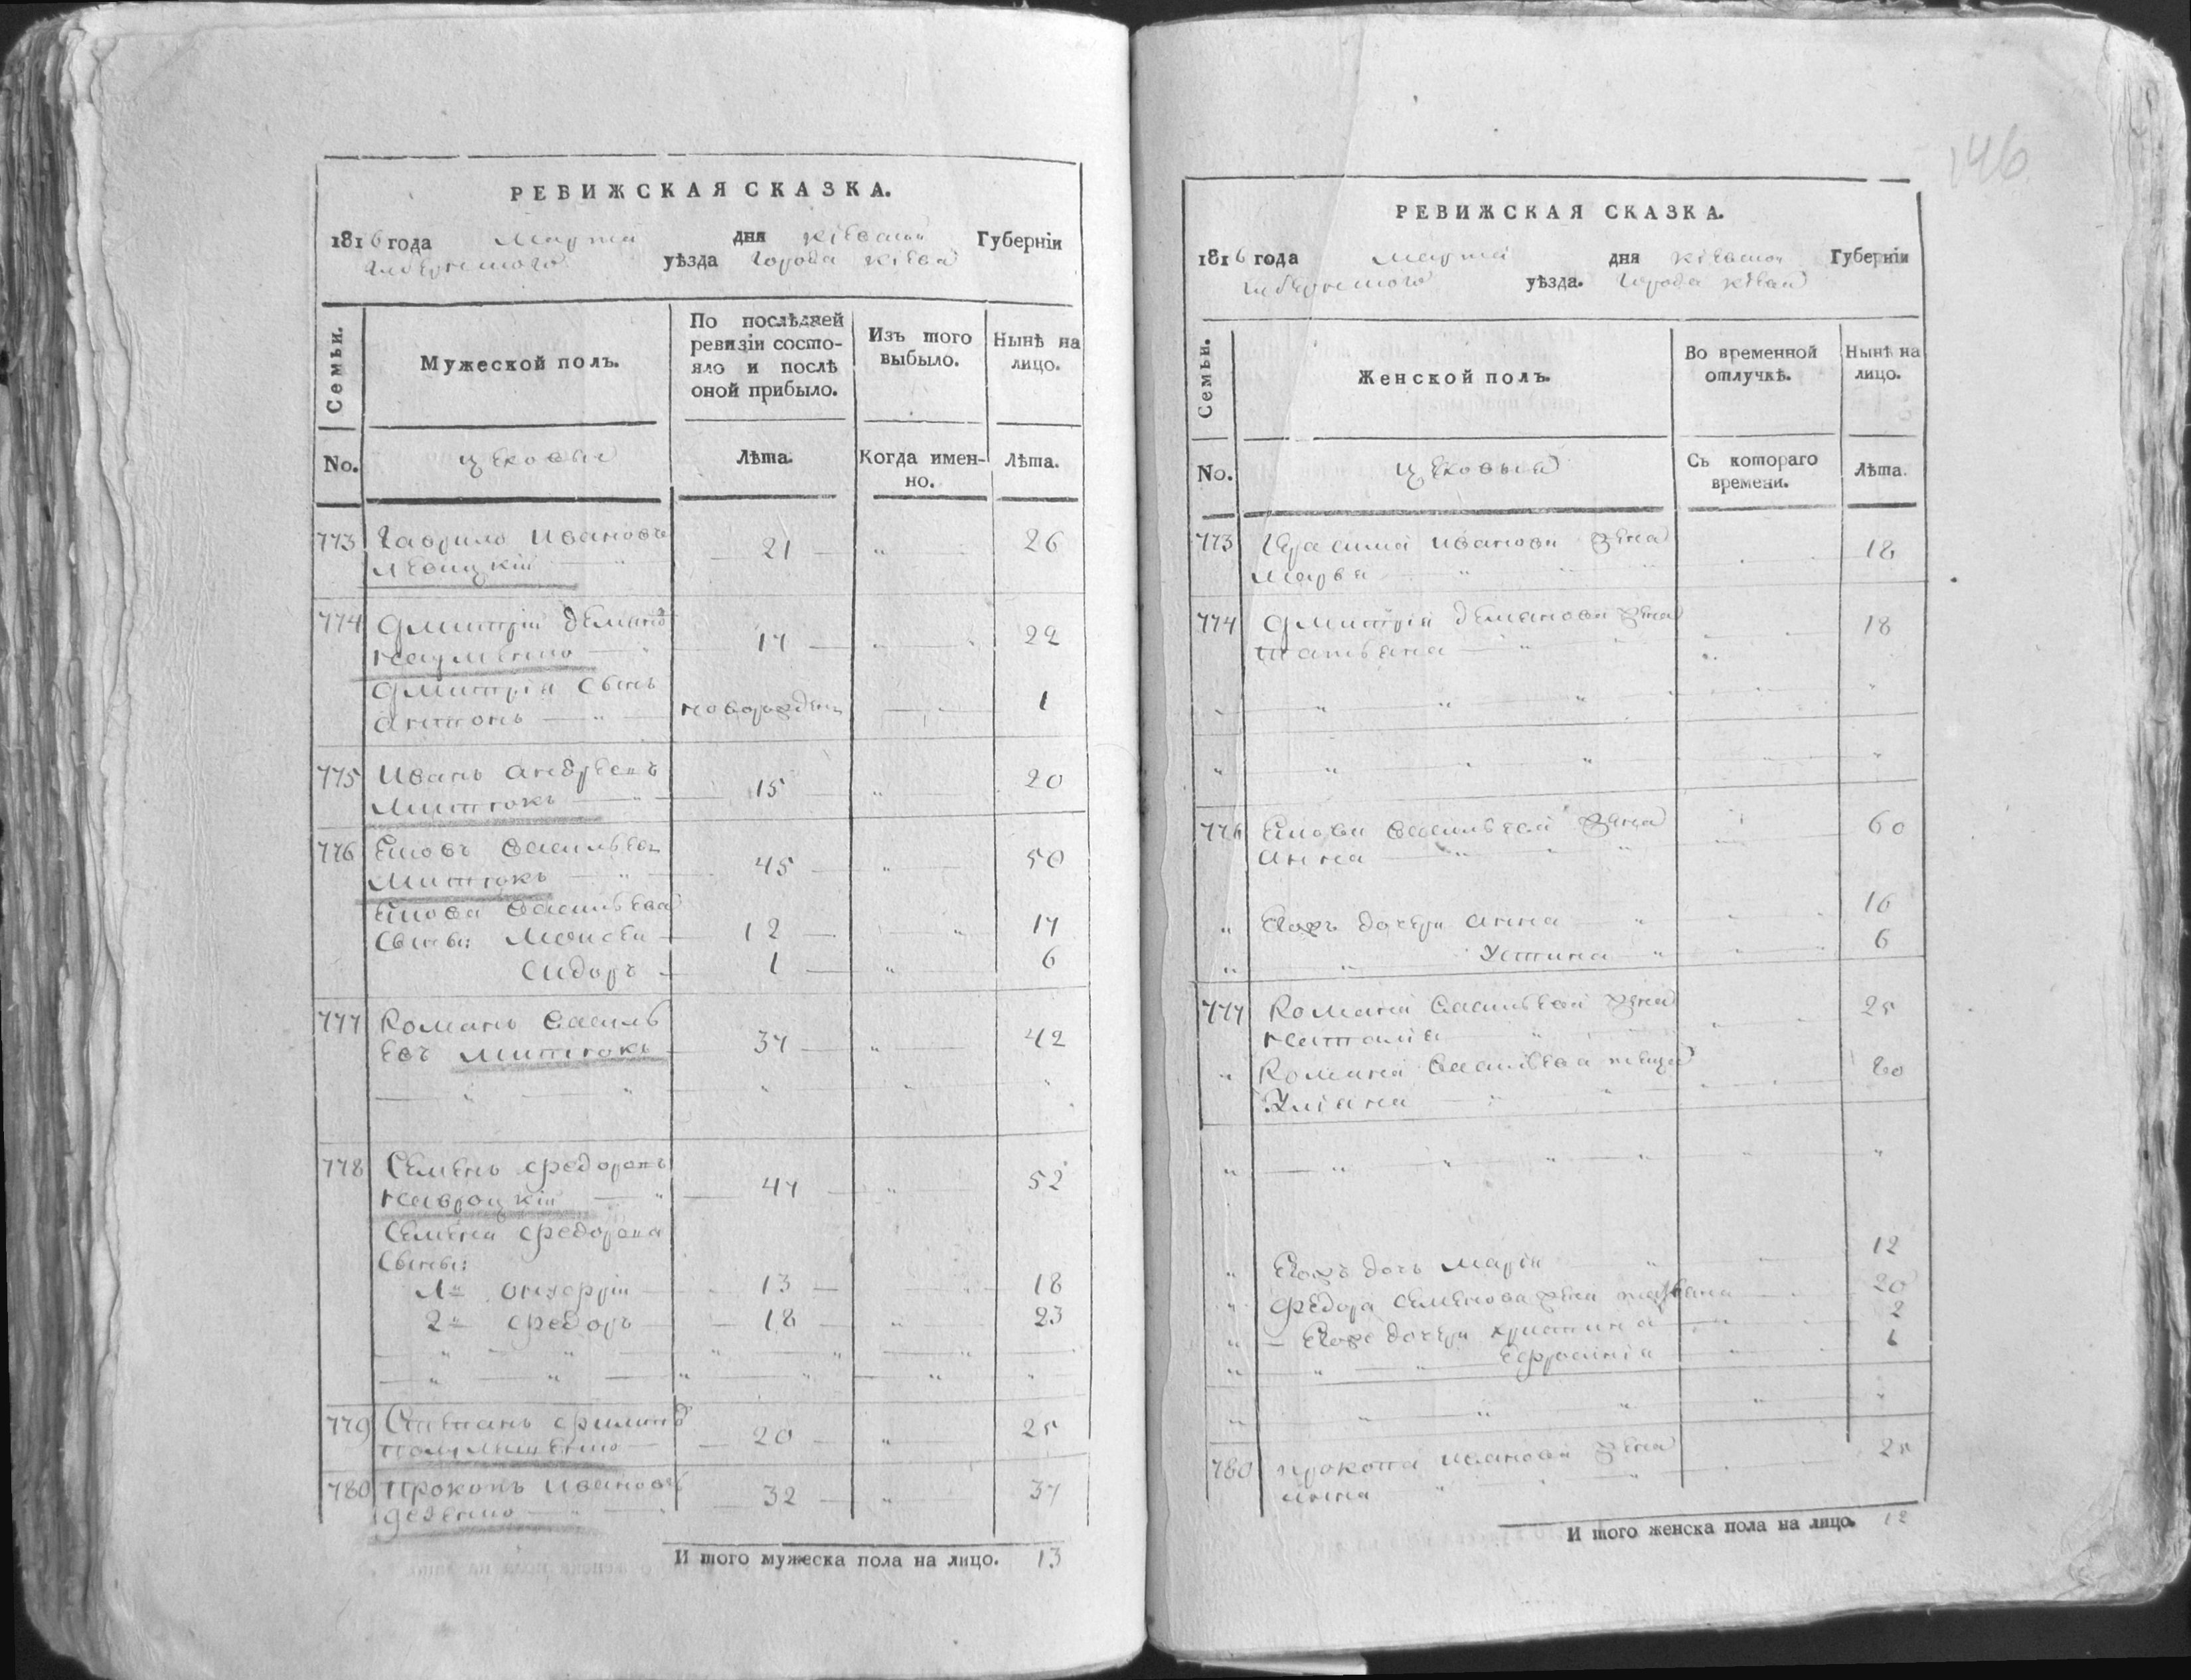 РЕВИЖСКАЯ СКАЗКА.
1816 года Марта дня Кіевской Губерніи
уѣзда Города Кіева
Семьи.
Мужеской полъ.
По послѣдней ревизіи состо-
яло и послѣ оной прибыло.
Изъ того выбыло.
Нынѣ на лицо.
No.
цеховые
Лѣта.
Когда имен-
но.
Лѣта.
773 Гаврило Ивановъ 21 26
Левицкій
774 Дмитрій Демяно 17 22
Науменко
Дмитрія сынъ
Антонъ новорожден 1
775 Иванъ Андреевъ 15 20
Митюкъ
776 Яковъ Васильев 45 50
Митюкъ
Якова Васильева
сыны: Моисей 12 17
Сидоръ 1 6
777 Романъ Василь
евъ Митюкъ 37 42
778 Семенъ Федоровъ 47 52
Навроцкій
Семена Федорова
сыны:
1й Онуфрій 13 18
2й Федоръ 18 23
779 Степанъ Филипо 20 25
780 Прокопъ Ивановъ 32 37
И того мужеска пола на лицо. 13
146
РЕВИЖСКАЯ СКАЗКА.
1816 года Марта дня Кіевской Губерніи
уѣзда. Города Кіева
Семьи.
Женской полъ.
Во временной отлучкѣ.
Нынѣ на лицо.
No.
цеховыя
Съ котораго времени.
Лѣта.
773 Иванова жена 18
Марья
774 Дмитрія Демянова жена 18
Татьяна
776 Якова Васильева жена 60
Анна
Ихъ дочери Анна 16
Устина 6
777 Романа Васильева жена 25
Наталія
Романа Васильева теща 80
Уліана
дочь Марія 12
Федора Семенова жена 20
дочери Христина 2
Ефросинія 1
780 Прокопа Иванова жена 25
Анна
И того женска пола на лицо. 12